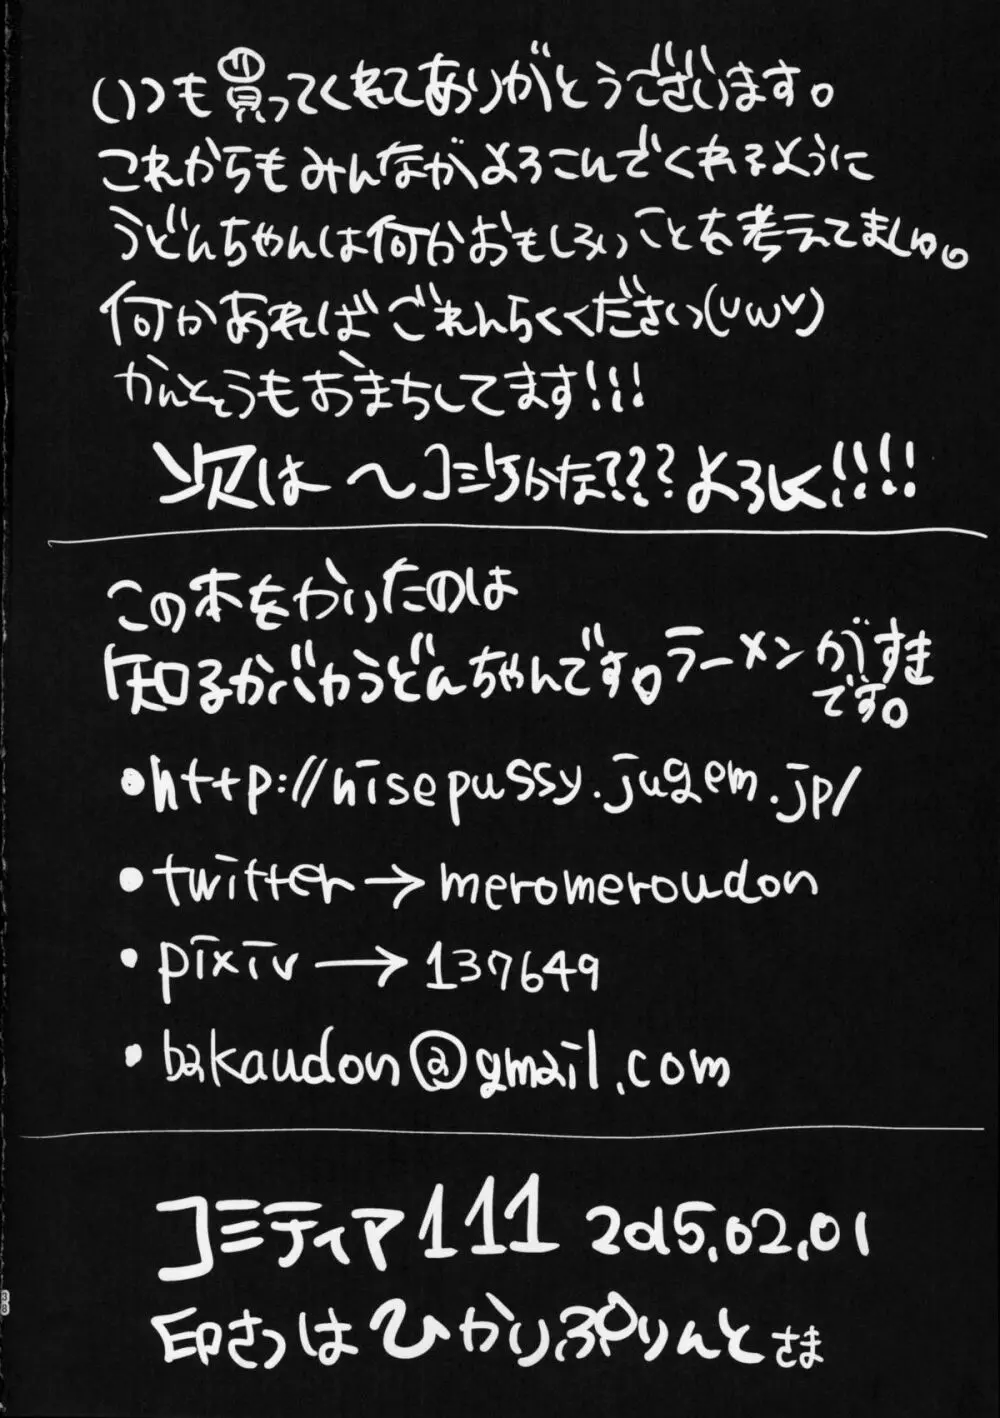 いつも買ってくれてありがとうございます。
これからもみんながよろこんでくれるように
うどんちゃんは何かおもしろいことを考えてましゅ。
何かあればごれんらくください(UωU)
かんそうもおまちしてます!!!
次は〜コミケかな???よろしく!!!!
この本をかいたのは
「知るかバカうどんちゃんです。ラーメンがすき
です。
•http://nisepussy.jugem.jp/
•twitter→meromeroudon
•pixiv→137649
•bakaudon@gmail.com
コミティア111 2015.02.01
印さつはひかりぷりんとさま
38